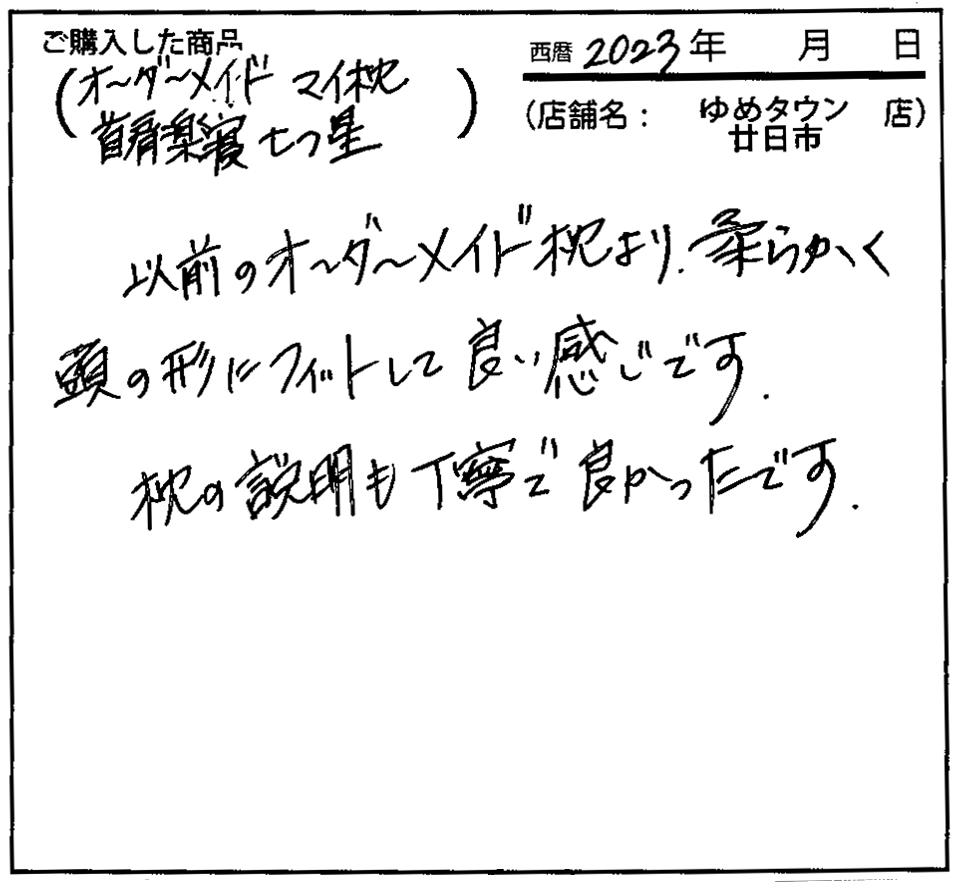 ご購入した商品
西暦 2023年 月 日
(オーダーメイド マイ枕
首肩楽寝 七つ星)
(店舗名: ゆめタウン 店)
廿日市
以前のオーダーメイド枕より、柔らかく
頭の形にフィットして良い感じです.
枕の説明も丁寧で良かったです.